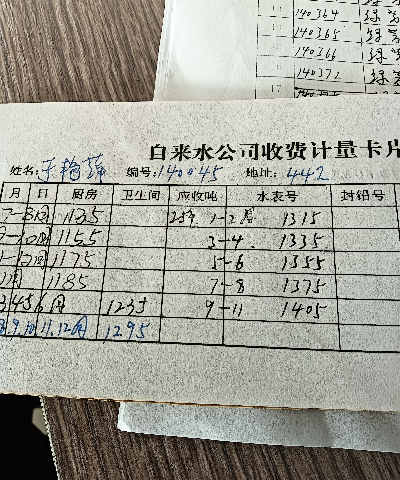 140364 绿
140365 绿
140366 绿
140372 绿
自来水公司收费计量卡片
姓名: 编号: 140045 地址: 442
月 日 厨房 卫生间 应收吨 水表号 封铅号
7-8月 1135 1-2月 1315
1155 3-4 1335
1175 5-6 1355
月 1185 7-8 1375
3456月 1235 9-11 1405
8.9.10 11.12月 1295